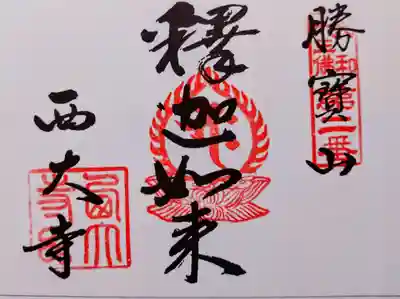 勝寶山
二番
釋迦如来
西大寺